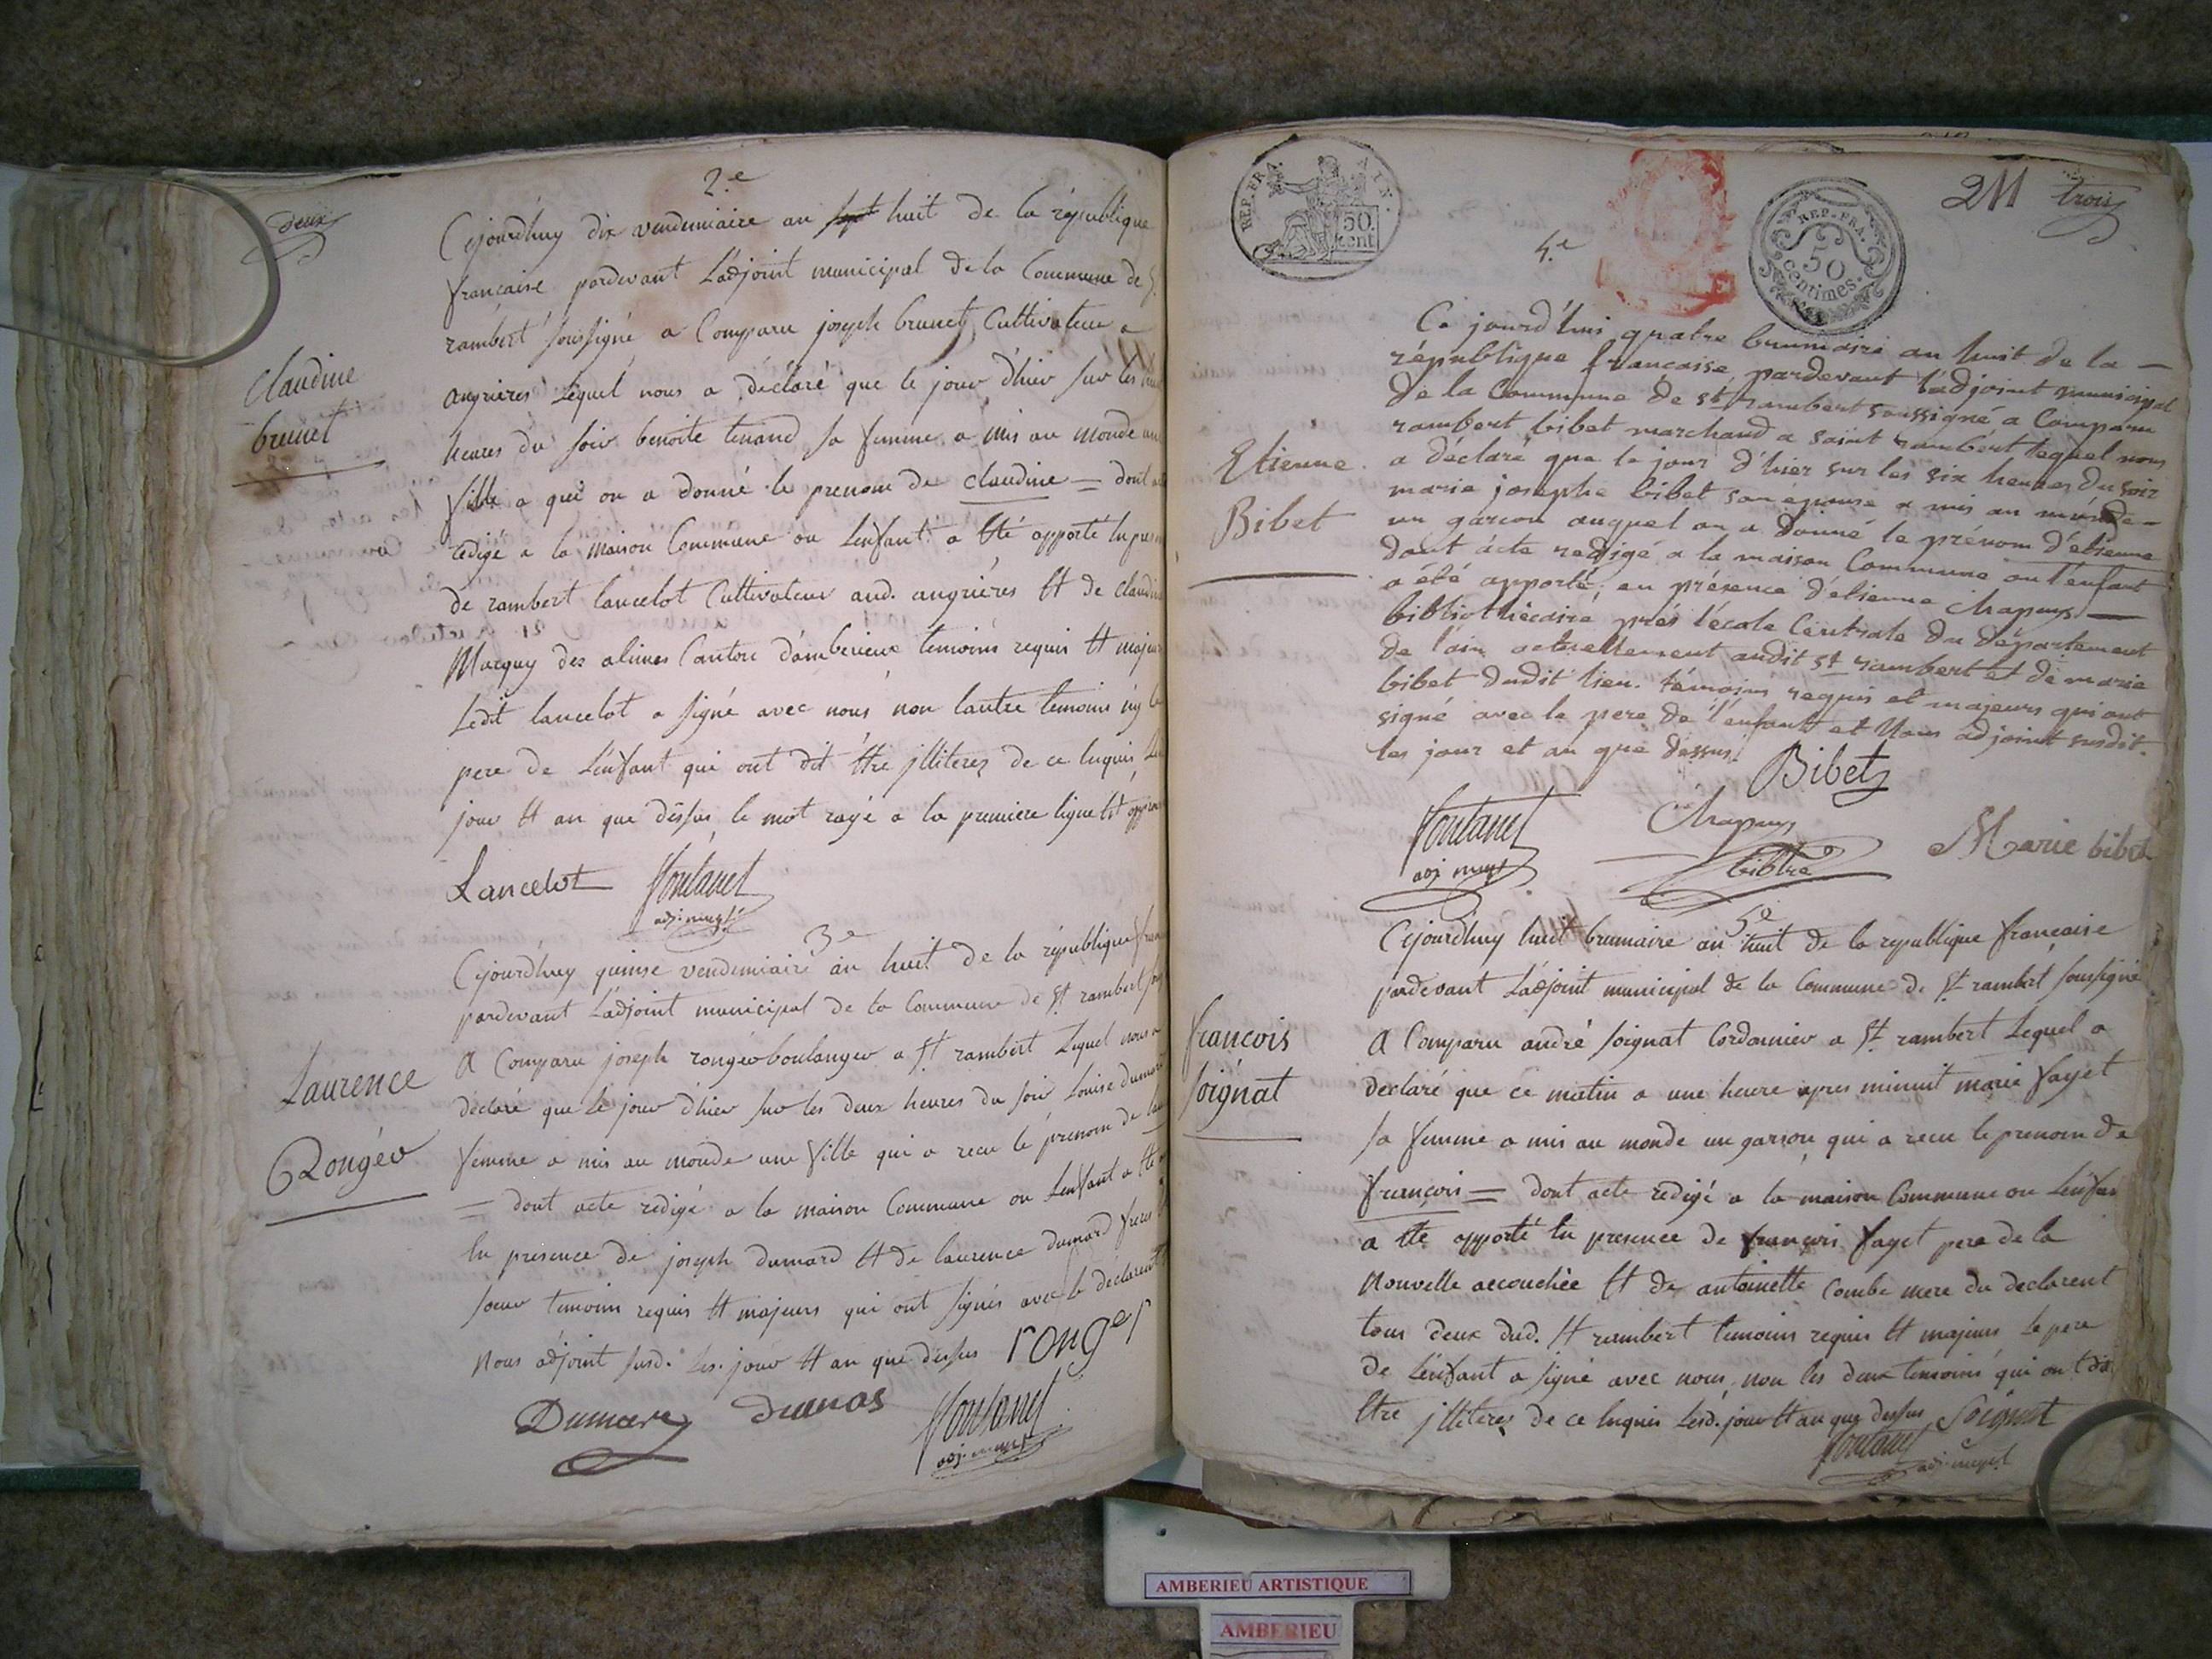 deux
2.e
Cejourdhuy dix vendemiaire an sept huit de la république
francaise pardevant L'adjoint municipal de la Commune de St
rambert soussigné a Comparu joseph brunet Cultivateur a
angrieres Lequel nous a déclaré que le jour d'hier sur les
heures du soir benoite tenand sa femme a mis au monde une
fille a qui on a donné le prenom de claudine = dont
redigé a la maison Commune ou L'enfant a Eté apporté En
de rambert lancelot Cultivateur aud. angrieres Et de claudine
Marguy des alimes Canton d'amberieux temoins requis Et majeurs
Ledit lancelot a signé avec nous non lautre temoins ny le
pere de L'enfant qui ont dit Etre jlliterez de ce Enquis
jour Et an que dessus, le mot rayé a la premiere ligne Est
claudine
brunet
Lancelot Montanet
adj. mupal
3e
Cejourdhuy quinse vendemiaire an huit de la république
pardevant L'adjoint municipal de la Commune de St rambert
a Comparu joseph rongeo boulanger a St rambert Lequel nous a
déclaré que Le jour d'hier sur les deux heures du soir Louise
femme a mis au monde une fille qui a recu le prenom de
= dont acte redigé a la maison Commune ou L'enfant a Eté
En presence de joseph dumard Et de laurence dumard freres
soeur temoins requis Et majeurs qui ont signés avec le declarent
nous adjoint susd. Les. jour Et an que dessus ronger
Laurence
Rongéo
Dumare dumas Montanet
adj. mupal
REP. FRA.
50.
cent
REP. FRA.
50
centimes.
211 trois
4.e
Ce jourd'hui quatre brumaire an huit de la —
république francaise pardevant l'adjoint municipal
de la Commune de st rambert soussigné a Comparu
rambert bibet marchand a saint rambert lequel nous
a déclaré que le jour d'hier sur les six heures du soir
marie josephe bibet son épouse a mis au monde —
un garcon auquel on a donné le prénom d'etienne
dont acte redigé a la maison Commune ou l'enfant
a été apporté, en présence d'etienne Chapuys —
bibliothécaire près l'école Centrale du département
de l'ain actuellement audit st rambert et de marie
bibet dudit lieu. témoins requis et majeurs qui ont
signé avec le pere de l'enfant et Nous adjoint susdit.
les jour et an que dessus.
Etienne
Bibet
Bibet
Montanet
adj mupal
Chapuys
bibltre
Marie bibet
5e
Cejourdhuy huit brumaire an huit de la republique francaise
pardevant L'adjoint municipal de la Commune de St rambert soussigné
a Comparu andré soignat Cordonnier a St rambert Lequel a
declaré que ce matin a une heure apres minuit marie fayet
sa femme a mis au monde un garson qui a recu le prenom de
françois = dont acte redigé a la maison Commune ou L'enfant
a Eté apporté En presence de françois fayet pere de la
nouvelle accouchée Et de antoinette Combe mere du declarent
tous deux dud. St rambert temoins requis Et majeurs Le pere
de L'enfant a signé avec nous, non les deux temoins qui ont dit
Etre jlliterez de ce Enquis Lesd. jour Et an que dessus Soignat
francois
soignat
Montanet
adj. mupal
AMBERIEU ARTISTIQUE
AMBERIEU